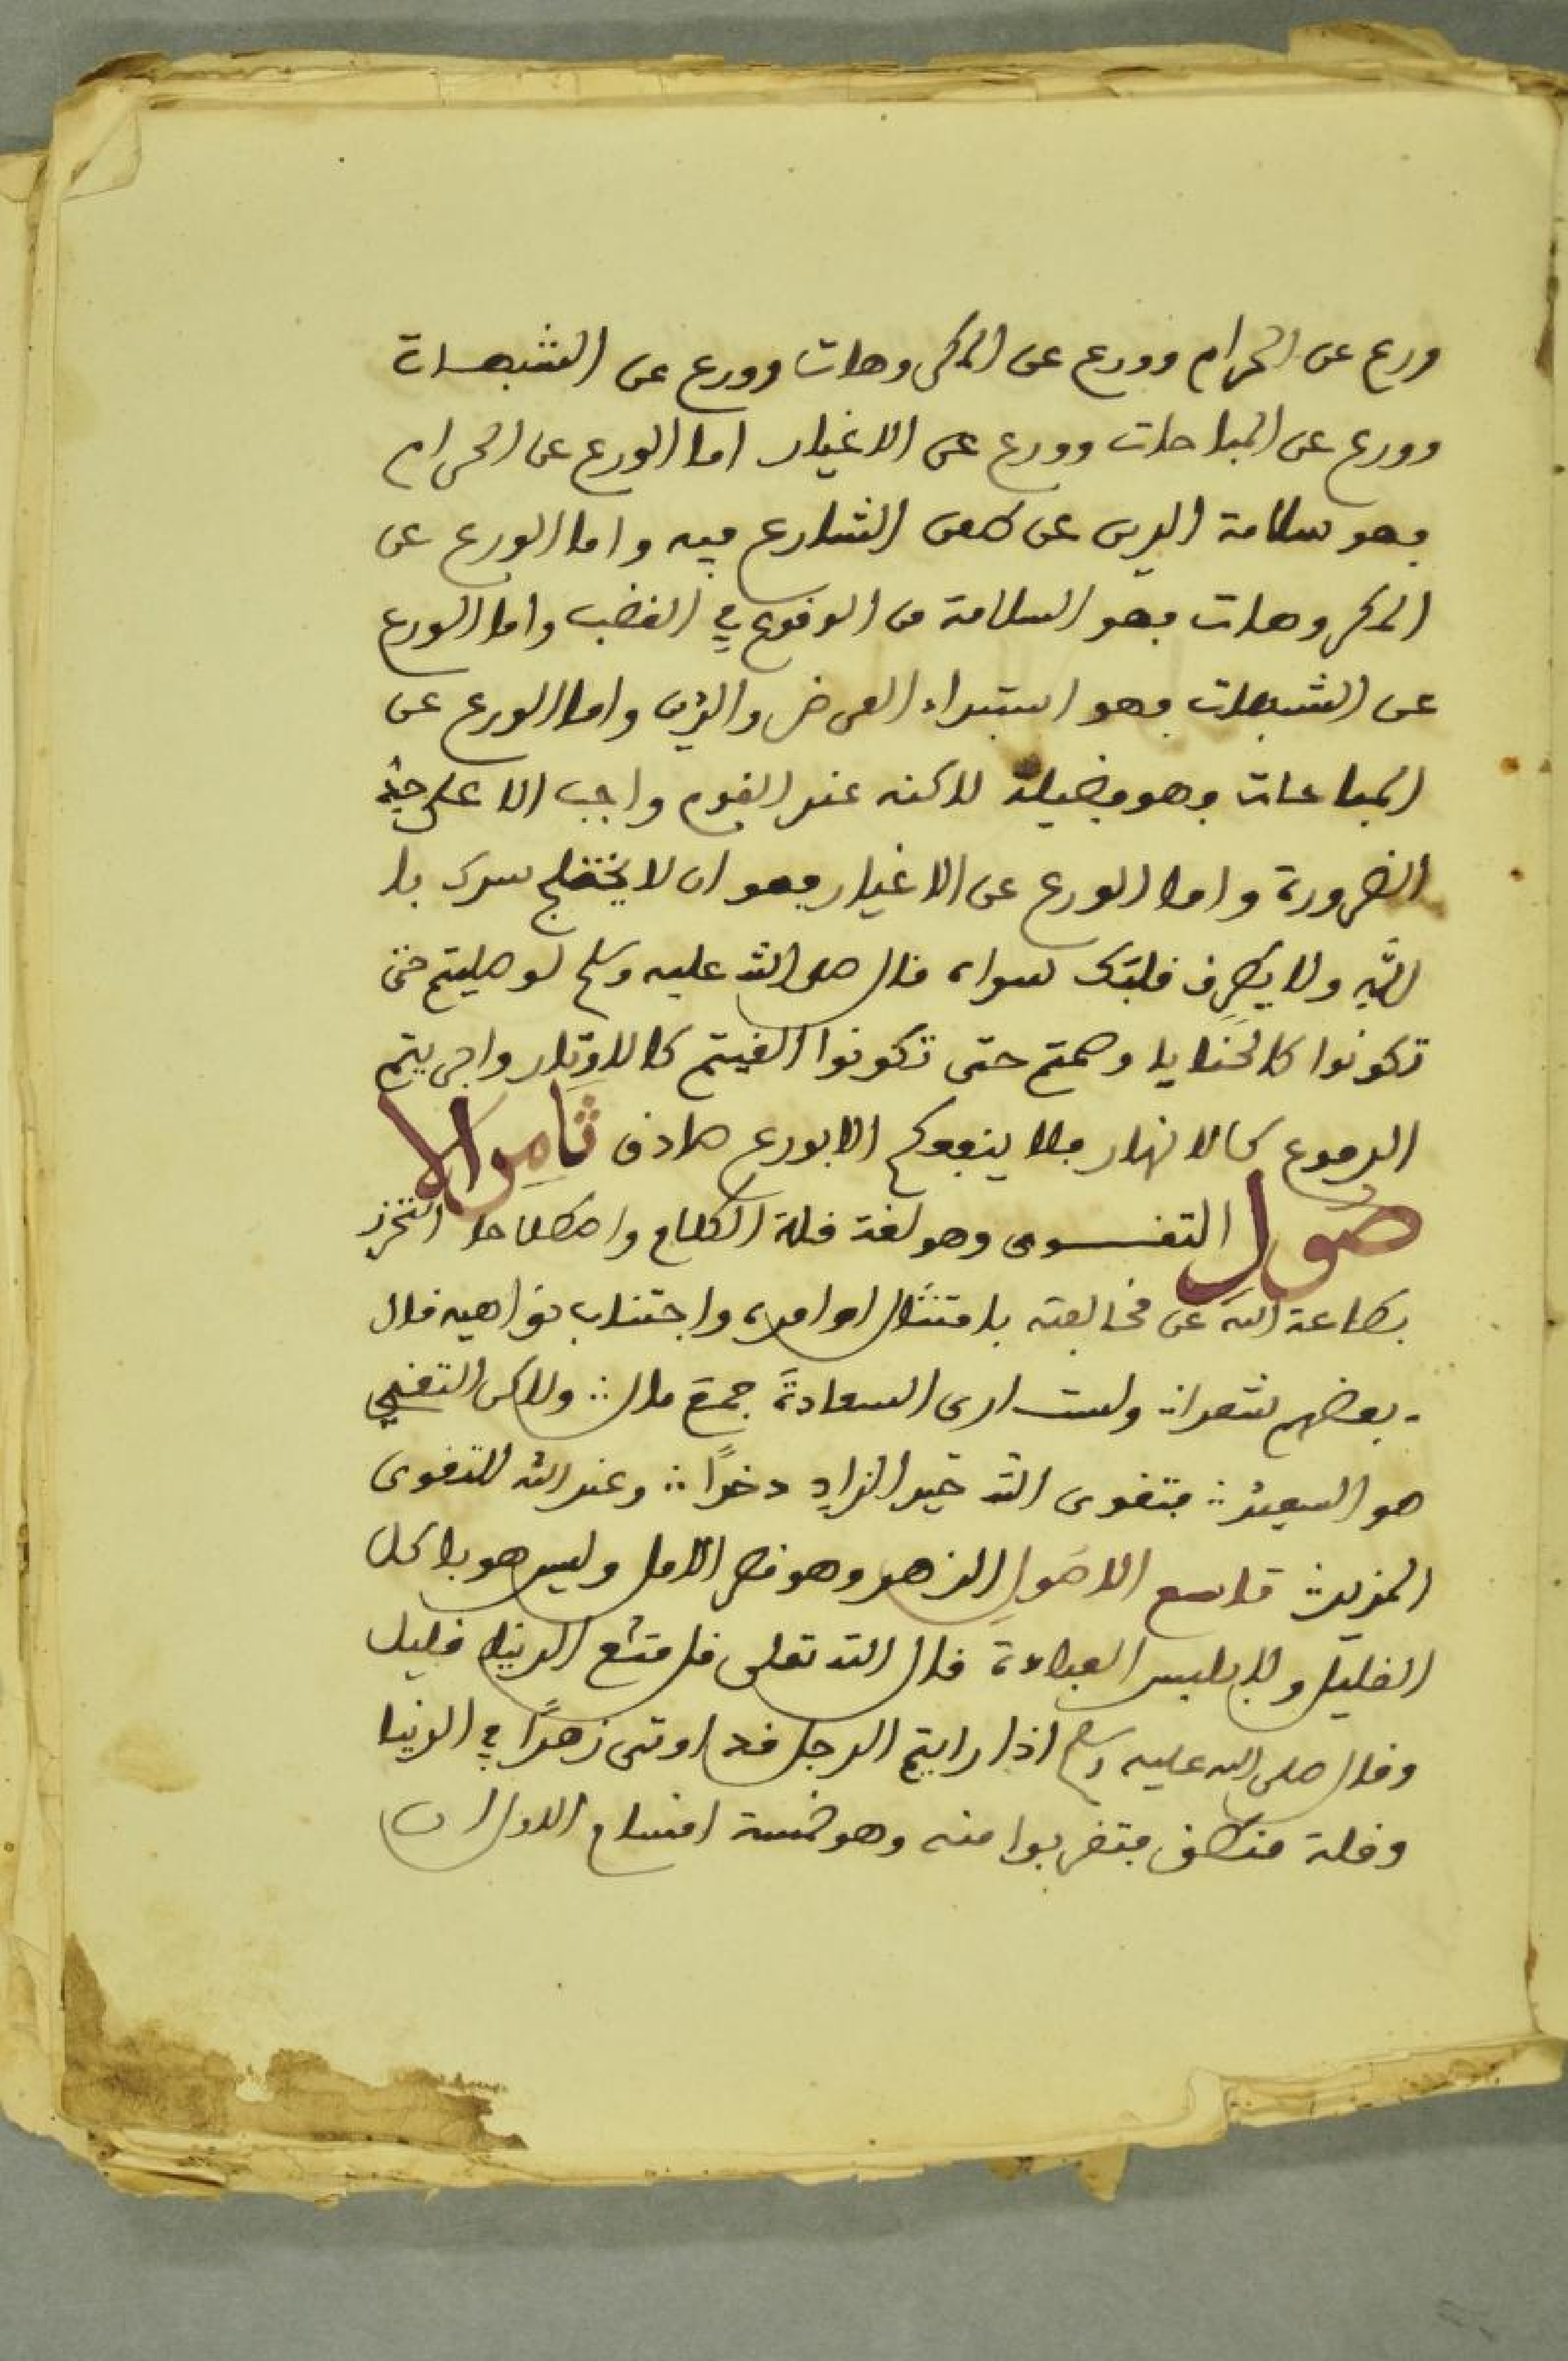 ورع عن الحرام وورع عن المكروهات وورع عن الشبهات
وورع عن المباحات وورع عن الاغيار اما الورع عن الحرام
فهو سلامة الدين عن طعن الشارع فيه واما الورع عن
المكروهات فهو السلامة من الوقوع في الغضب واما الورع
عن الشبهات فهو استبراء العرض والدين واما الورع عن
المباحات فهو فضيلة لاكنه عند القوم واجب الا على حد
الضرورة واما الورع عن الاغيار فهو ان لا يختلج سرك با
لله ولا يطرف قلبك سواه قال صلى الله عليه وسلم لو صليتم حتى
تكونوا كالحنايا وصمتم حتى تكونوا الفيتم كالاوتار واجريتم
الدموع كالانهار فلا ينفعكم الا بورع صادق ثامن الا
صول التقوى وهو لغة قلة الكلام واصطلاحا التحرز
بطاعة الله عن مخالفته بامتثال اوامره واجتناب نواهيه قال
بعضهم شعرا ∴ ولست ارى السعادة جمع مال ∴ ولاكن التقي
هو السعيد ∴ فتقوى الله خير الزاد دخرا ∴ وعند الله للتقوى
المزيد ∴ تاسع الاصول الزهد وهو قصر الامل وليس هو باكل
القليل ولا بلبس العباءة قال الله تعلى قل متع الدنيا قليل
وقال صلى الله عليه وسلم اذا رايتم الرجل قد اوتى زهدا في الدنيا
وقلة منطق فتقربوا منه وهو خمسة اقسام الاول ان